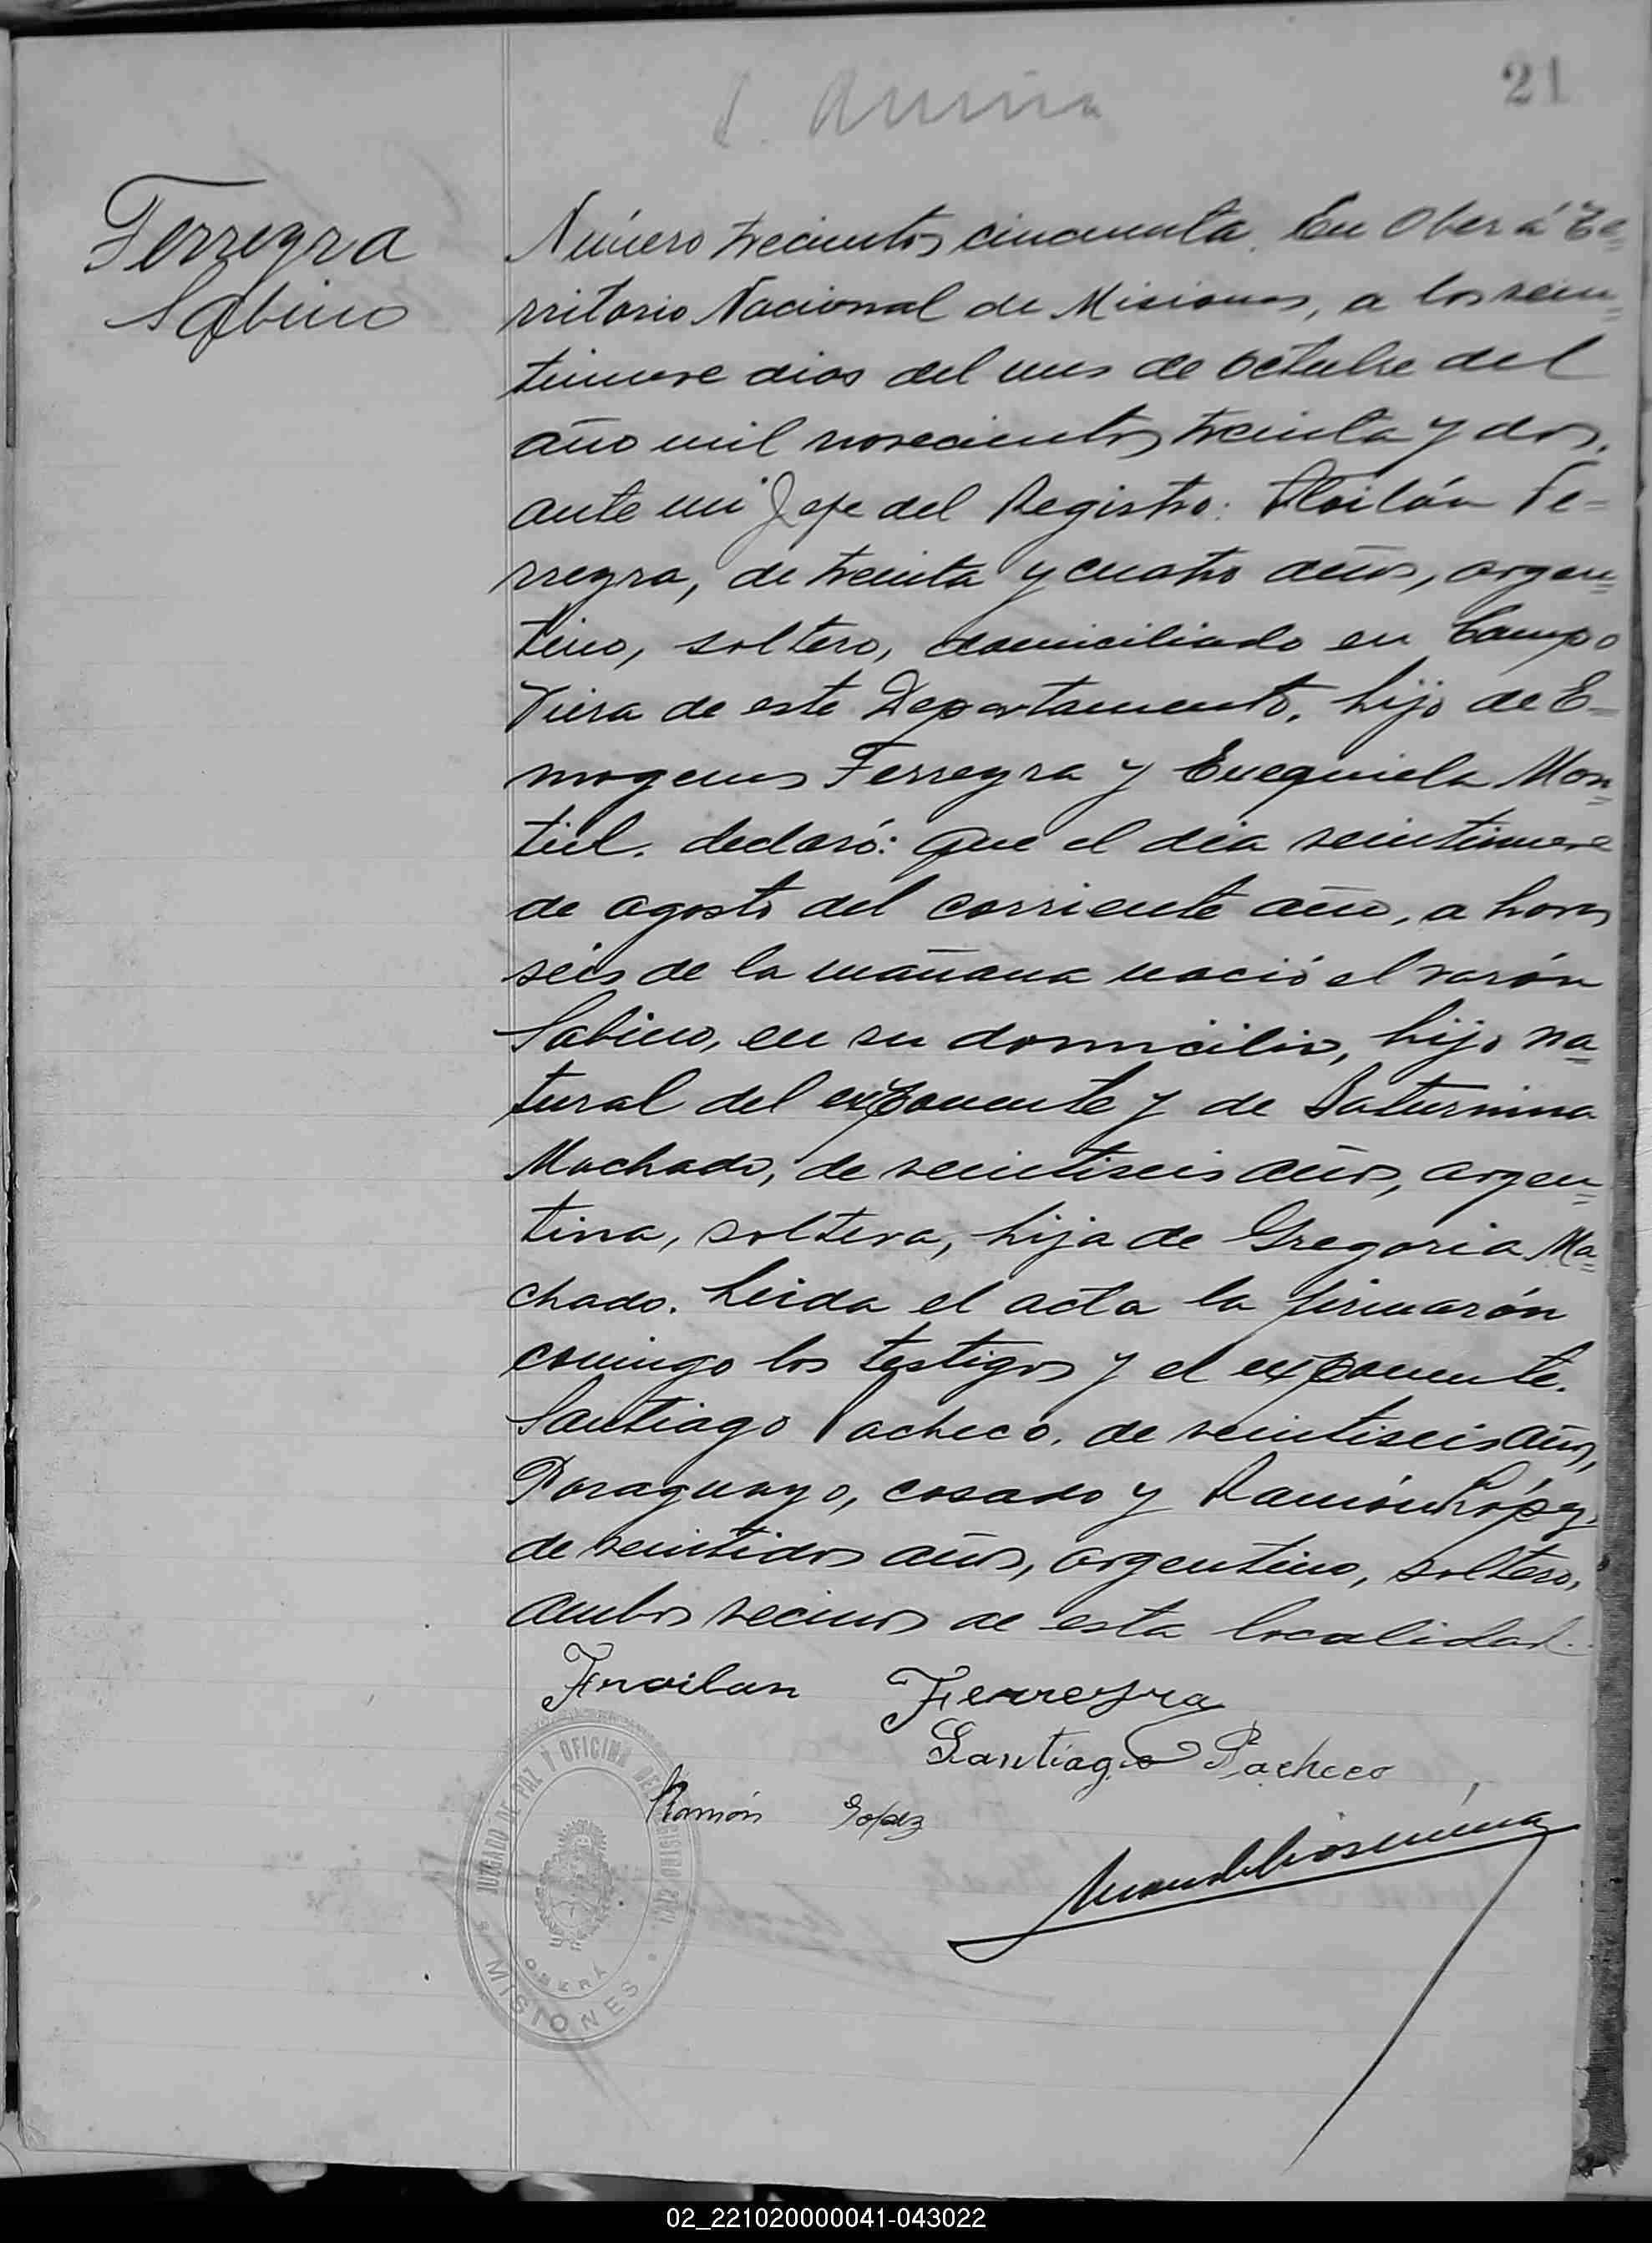 21
Ferreyra
Sabino
Número trecientos cincuenta. En Oberá Te=
rritorio Nacional de Misiones, a los vein=
tinueve dias del mes de octubre del
año mil novecientos treinta y dos.
ante mi Jefe del Registro: Floilán Fe=
rreyra, de treinta y cuatro años, argen=
tino, soltero, domiciliado en Campo
Viera de este Departamento, hijo de E=
mogenes Ferreyra y Exequiela Mon=
tiel. declaró: que el dia veintinueve
de agosto del corriente año, a horas
séis de la mañana nació el varón
Sabino, en su domicilio, hijo na=
tural del exponente y de Saturnina
Machado, de veintiseis años, argen=
tina, soltera, hija de Gregoria Ma=
chado. Leida el acta la firmarón
comigo los testigos y el exponente.
Santiago Pacheco, de veintiseis años,
Paraguayo, casado y Ramón López,
de veintidos años, argentino, soltero,
ambos vecinos de esta localidad.
Froilan Ferreyra
Santiago Pacheco
Ramón Lopez
JUZGADO DE PAZ Y OFICINA DEL REGISTRO CIVIL
OBERÁ
MISIONES
02_221020000041-043022